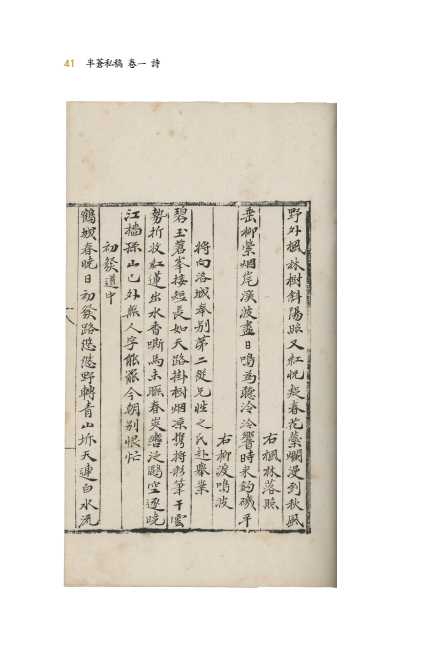 41 半蒼私稿 卷一 詩
野外楓林樹斜陽照又紅恍疑春花蘂爛漫到秋風
右楓林落照
垂柳縈烟岸溪波盡日鳴爲聽泠泠響時来釣磯平
右柳渡鳴波
將向洛城奉別第二從兄性之氏赴擧業
碧玉蒼峯接短長如天路掛樹烟凉携將彩筆干雲
勢折收紅蓮出水香嘶馬未 春 泛鷗空逐曉
江檣孫山已外無人字能罷今朝別恨忙
初發道中
鶴城春曉日初發路悠悠野轉青山坼天連白水流